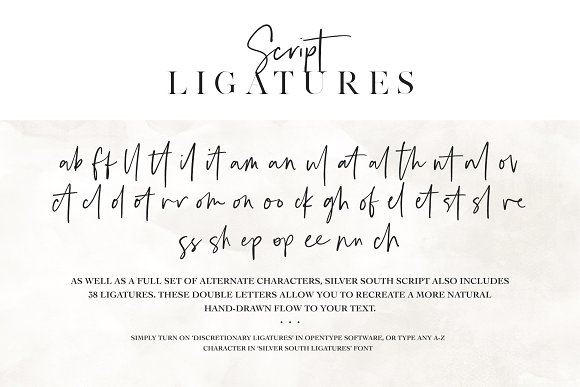 Script
LIGATURES
ab ff ll tt il it am an ul at al th nt nl ov
ct cl d ot rr om on oo ck gh of el et st sl re
ss sh ep op ee nn ch
AS WELL AS A FULL SET OF ALTERNATE CHARACTERS, SILVER SOUTH SCRIPT ALSO INCLUDES
38 LIGATURES. THESE DOUBLE LETTERS ALLOW YOU TO RECREATE A MORE NATURAL
HAND-DRAWN FLOW TO YOUR TEXT.
• • •
SIMPLY TURN ON 'DISCRETIONARY LIGATURES' IN OPENTYPE SOFTWARE, OR TYPE ANY A-Z
CHARACTER IN 'SILVER SOUTH LIGATURES' FONT